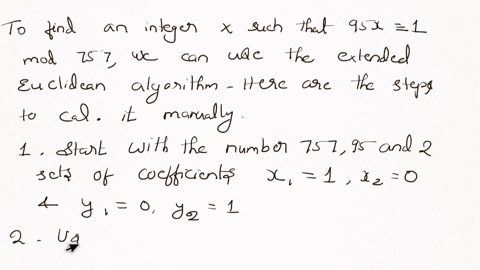 To find an integer x such that 95x ≡ 1
mod 757, we can use the extended
Euclidean algorithm - Here are the steps
to cal. it manually.
1. Start with the number 757, 95 and 2
sets of coefficients x₁ = 1, x₂ = 0
& y₁ = 0, y₂ = 1
2 - Us